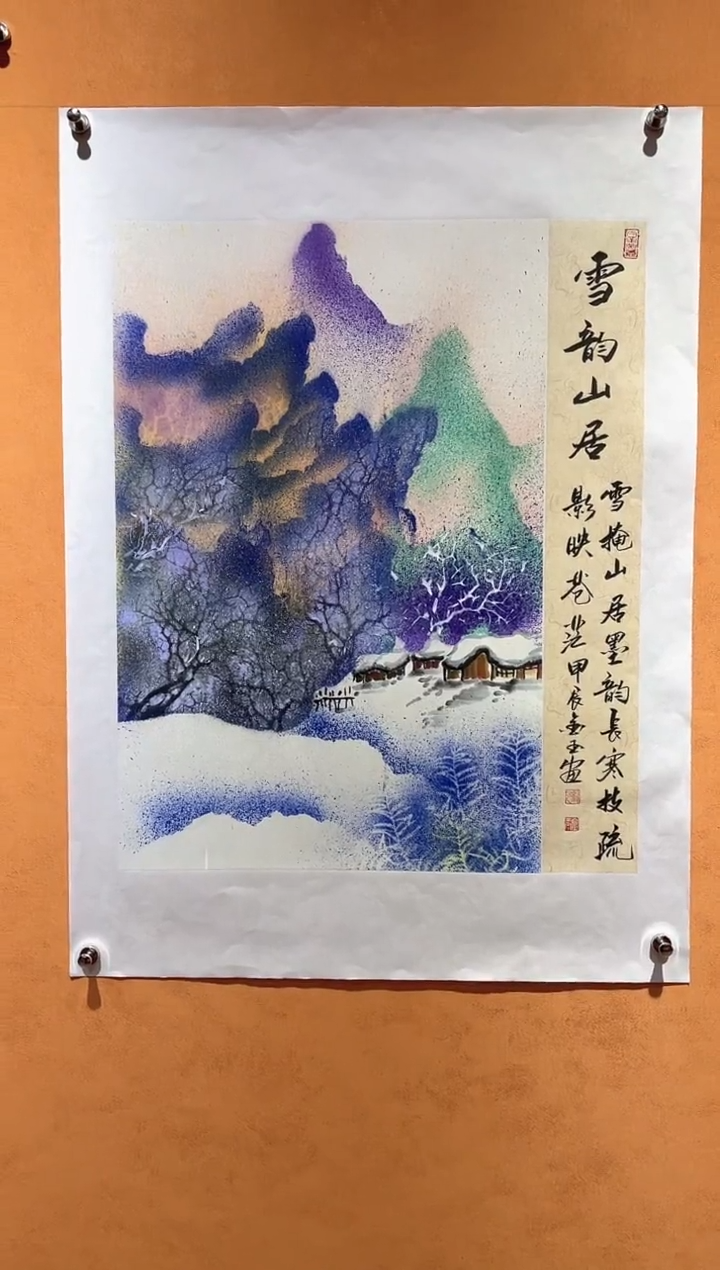 雪韵山居
雪掩山居墨韵长寒枝疏
影映苍茫甲辰金玉画